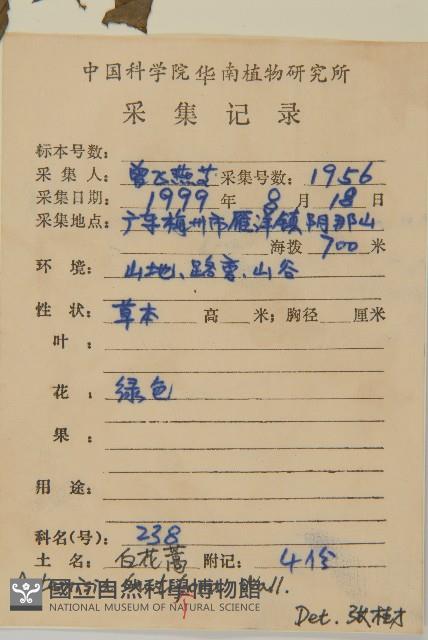 中国科学院华南植物研究所
采集记录
标本号数:
采集人: 曾飞燕 采集号数: 1956
采集日期: 1999 年 8 月 18 日
采集地点: 广东梅州市雁洋镇阴那山
海拨 700 米
环境: 山地、路旁、山谷
性状: 草本 高 米; 胸径 厘米
叶:
花: 绿色
果:
用途:
科名(号): 238
土名: 白花蒿 附记: 4份
國立自然科學博物館
NATIONAL MUSEUM OF NATURAL SCIENCE
Det. 张桂才